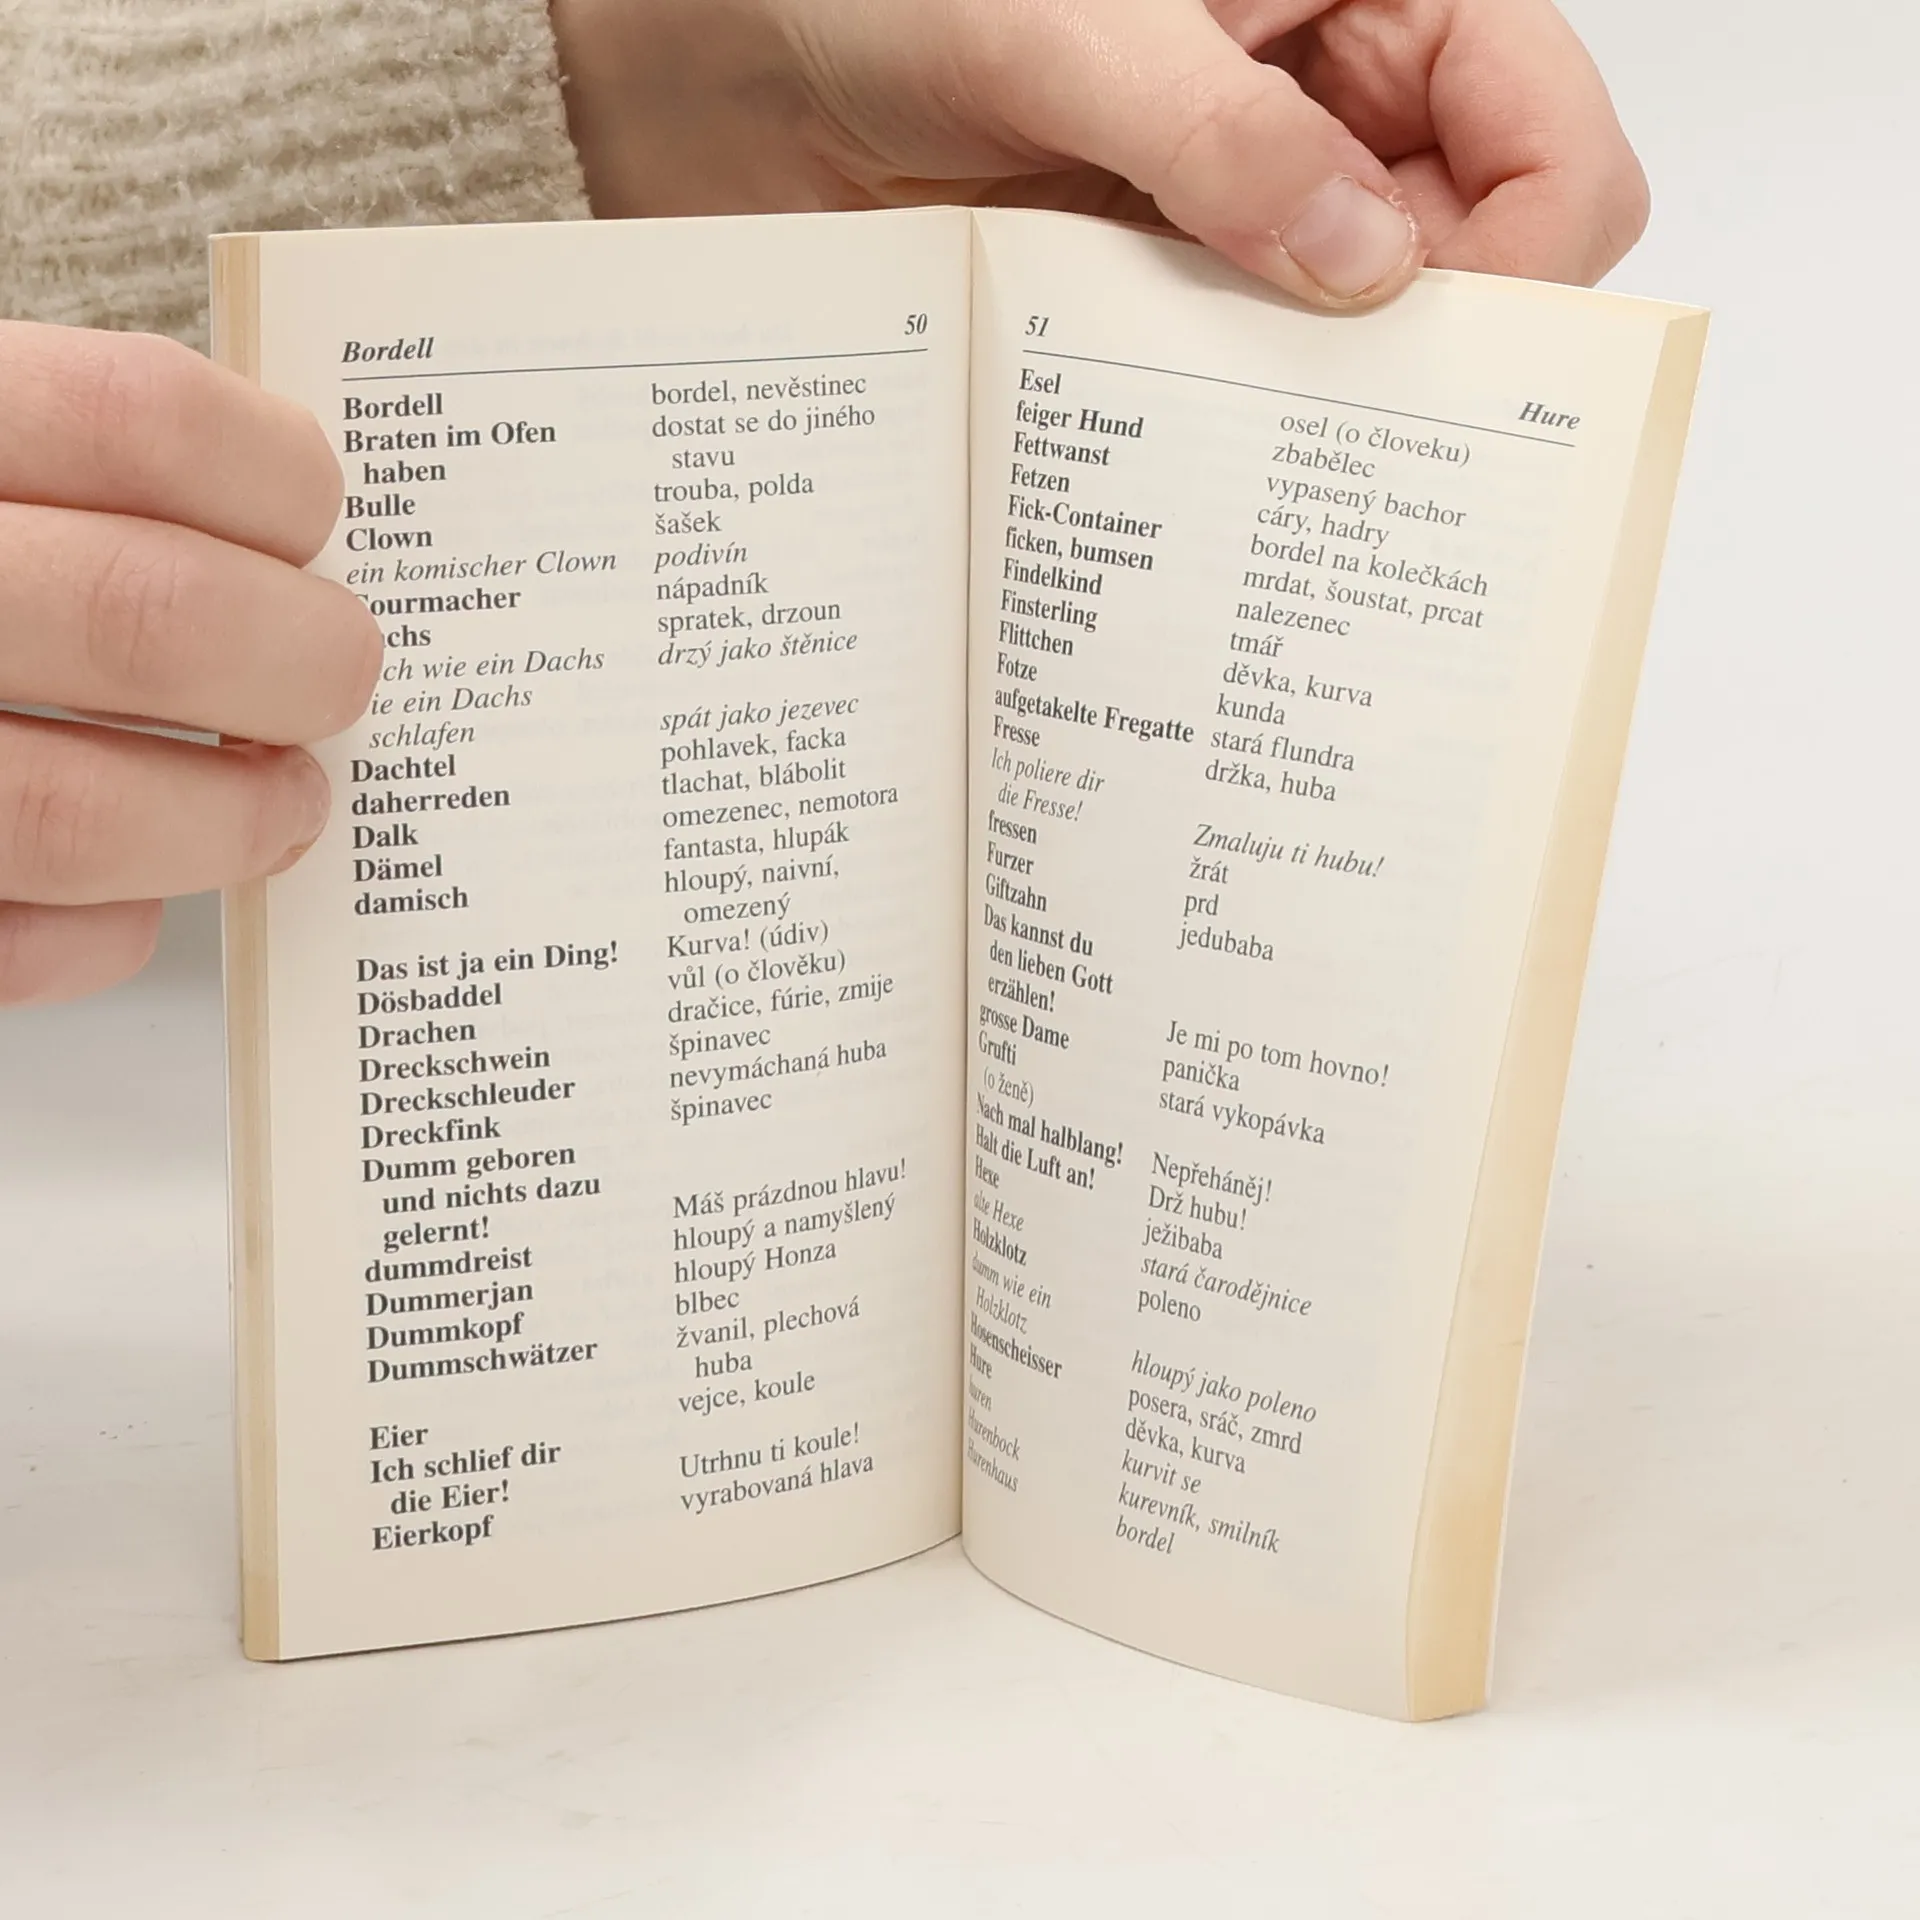 Bordell 50
Bordell bordel, nevěstinec
Braten im Ofen dostat se do jiného
haben stavu
Bulle trouba, polda
Clown šašek
ein komischer Clown podivín
ourmacher nápadník
chs spratek, drzoun
ch wie ein Dachs drzý jako štěnice
ie ein Dachs
schlafen spát jako jezevec
Dachtel pohlavek, facka
daherreden tlachat, blábolit
Dalk omezenec, nemotora
Dämel fantasta, hlupák
damisch hloupý, naivní,
omezený
Das ist ja ein Ding! Kurva! (údiv)
Dösbaddel vůl (o člověku)
Drachen dračice, fúrie, zmije
Dreckschwein špinavec
Dreckschleuder nevymáchaná huba
Dreckfink špinavec
Dumm geboren
und nichts dazu
gelernt! Máš prázdnou hlavu!
dummdreist hloupý a namyšlený
Dummerjan hloupý Honza
Dummkopf blbec
Dummschwätzer žvanil, plechová
huba
Eier vejce, koule
Ich schlief dir
die Eier! Utrhnu ti koule!
Eierkopf vyrabovaná hlava
51 Hure
Esel osel (o človeku)
feiger Hund zbabělec
Fettwanst vypasený bachor
Fetzen cáry, hadry
Fick-Container bordel na kolečkách
ficken, bumsen mrdat, šoustat, prcat
Findelkind nalezenec
Finsterling tmář
Flittchen děvka, kurva
Fotze kunda
aufgetakelte Fregatte stará flundra
Fresse držka, huba
Ich poliere dir
die Fresse! Zmaluju ti hubu!
fressen žrát
Furzer prd
Giftzahn jedubaba
Das kannst du
den lieben Gott
erzählen! Je mi po tom hovno!
grosse Dame panička
Grufti stará vykopávka
(o ženě)
Nach mal halblang! Nepřeháněj!
Halt die Luft an! Drž hubu!
Hexe ježibaba
alte Hexe stará čarodějnice
Holzklotz poleno
dumm wie ein
Holzklotz hloupý jako poleno
Hosenscheisser posera, sráč, zmrd
Hure děvka, kurva
huren kurvit se
Hurenbock kurevník, smilník
Hurenhaus bordel